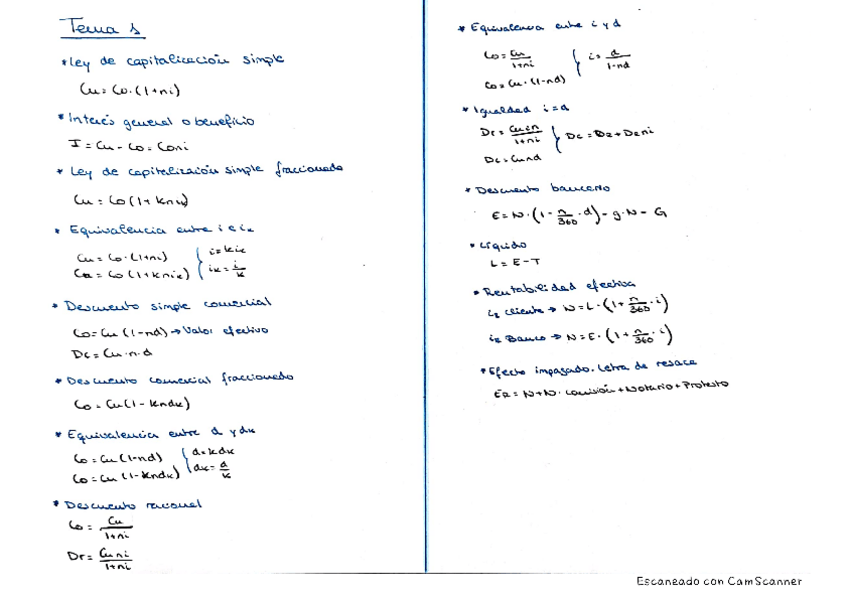 Tema 1
* Ley de capitalización simple
Cn = Co · (1+ni)
* Interés general o beneficio
I = Cn - Co = Coni
* Ley de capitalización simple fraccionada
Cn = Co (1+ knik)
* Equivalencia entre i e ik
Cn = Co · (1+ni)
Cn = Co (1+knik)
i = kik
ik = i/k
* Descuento simple comercial
Co = Cn (1-nd) → Valor efectivo
Dc = Cn · n · d
* Descuento comercial fraccionado
Co = Cn (1- kndk)
* Equivalencia entre d y dk
Co = Cn (1-nd)
Co = Cn (1- kndk)
d = kdk
dk = d/k
* Descuento racional
Co = Cn/1+ni
Dr = Cnni/1+ni
* Equivalencia entre i y d
Co = Cn/1+ni
Co = Cn · (1-nd)
i = d/1-nd
* Igualdad i = d
Dr = Cnin/1+ni
Dc = Cnnd
Dc = Dr + Drni
* Descuento bancario
E = N · (1 - n/360 · d) - g · N - G
* Líquido
L = E - T
* Rentabilidad efectiva
ir cliente → N = L · (1 + n/360 · i)
ir Banco → N = E · (1 + n/360 · i)
* Efecto impagado. Letra de resaca
ER = N + N · comisión + Notario + Protesto
Escaneado con CamScanner